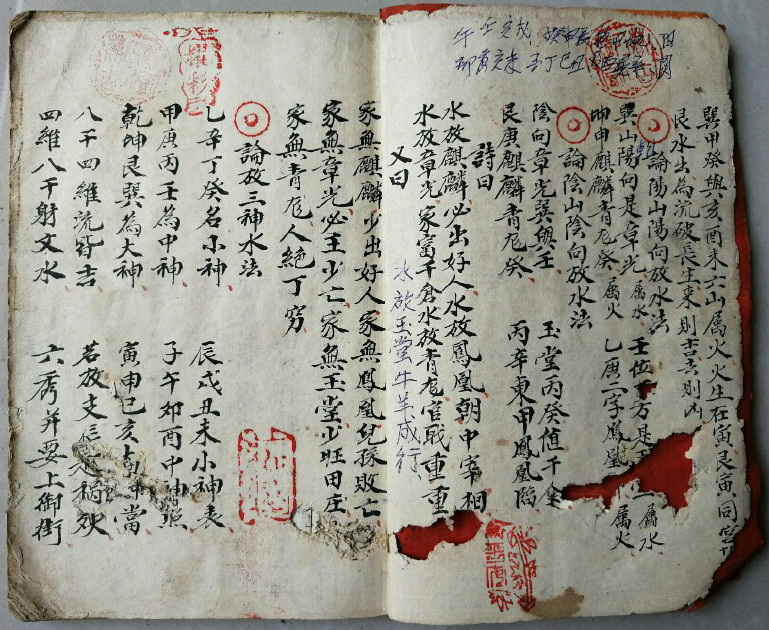 巽甲癸與亥酉未六山属火火生在寅艮寅同宫
艮水出為流破長生來則吉去則凶
論陽山陽向放水法
巽山陽向是章光属水 壬位 方是 属水
坤申麒麟青龙癸属火 乙庚二字鳳凰 属火
論陰山陰向放水法
陰向章光巽與壬 玉堂丙癸值千金
艮庚麒麟青龙癸 丙辛東甲鳳凰陷
詩曰
水放麒麟必出好人水放鳳凰朝中宰相
水放章光家富千倉水放青龙官戰重重
又曰
水放玉堂牛羊成行
家無麒麟少出好人家無鳳凰兒孫敗亡
家無章光必主少亡家無玉堂少旺田庄
家無青龙人絶丁穷
論放三神水法
乙辛丁癸名小神 辰戌丑未小神表
甲庚丙壬為中神 子午卯酉中神照
乾坤艮巽為大神 寅申巳亥 當
八干四維流皆吉 若放支 禍殃
四維八干射文水 六秀并要上御街